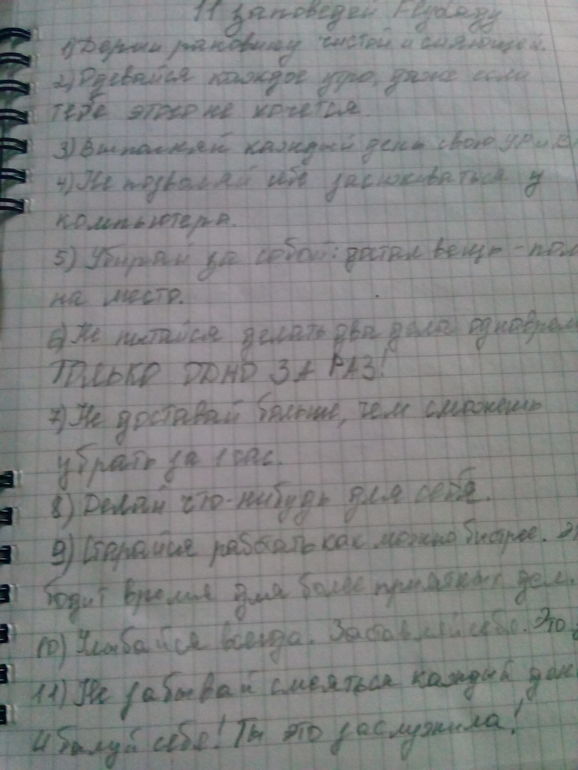 11 заповедей Флуледу
1) Держи раковину чистой и сияющей.
2) Одевайся каждое утро, даже если
тебе этого не хочется.
3) Выполняй каждый день свою УРиВ
4) Не позволяй себе засиживаться у
компьютера.
5) Убирай за собой: достал вещь - пол
на место.
6) Не пытайся делать два дела одноврем
ТОЛЬКО ОДНО ЗА РАЗ!
7) Не доставай больше, чем сможешь
убрать за 1 час.
8) Делай что-нибудь для себя.
9) Старайся работать как можно быстрее. Э
бодит время для более приятных дел.
10) Улыбайся всегда. Заставляй себя. Это
11) Не забывай смеяться каждый ден
И балуй себя! Ты это заслужила!